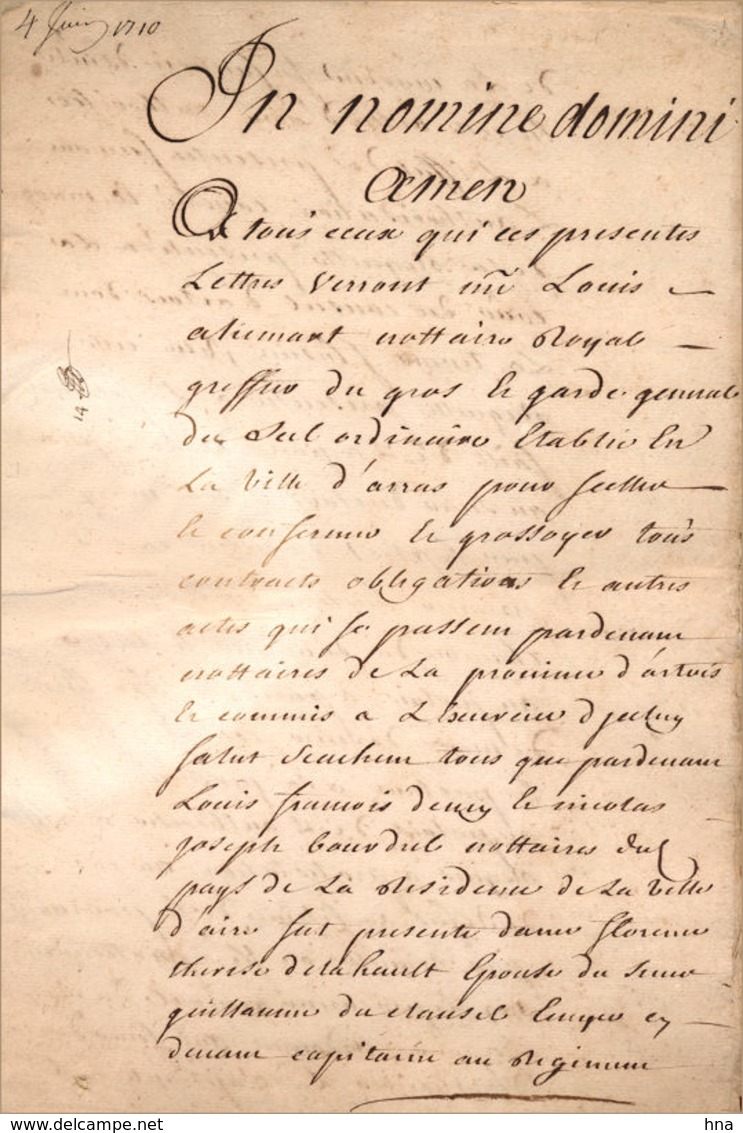 4 Juin 1710
In nomine domini
amen
A tous ceux qui ces presentes
Lettres Verront Louis
nottaire Royal
greffier du gros Et garde general
du Seel ordinaire Etablie En
La Ville d'arras pour sceller
Et conserver Et grossoyer tous
contracts obligations Et autres
actes qui se passent pardevant
nottaires de La province d'artois
Et commis a L
salut Scachent tous que pardevant
Louis francois Et nicolas
joseph nottaires dud
pays de La Residence de La Ville
d'aire fut presente dame florence
therese delahault Epouse du sieur
guillaume du clausel Ecuyer cy
devant capitaine au Regiment
hna